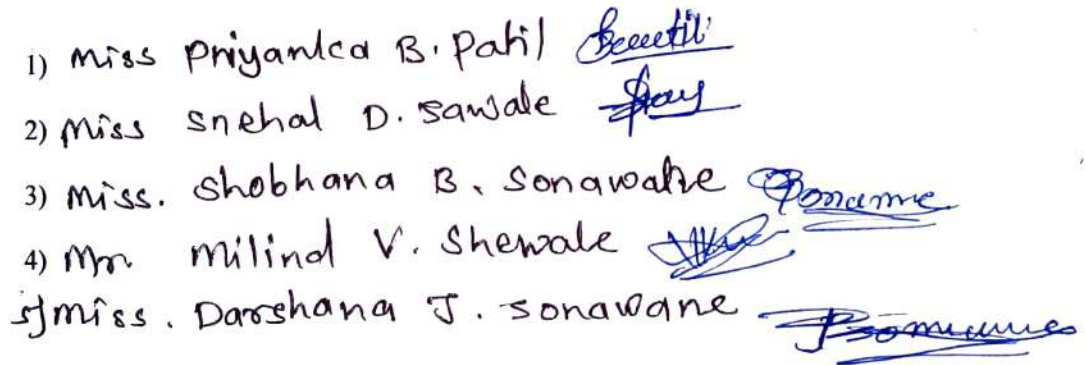 1) Miss Priyanka B. Patil
2) Miss Snehal D. Sawale
3) Miss. Shobhana B. Sonawane
4) Mr. Milind V. Shewale
5) Miss. Darshana J. Sonawane